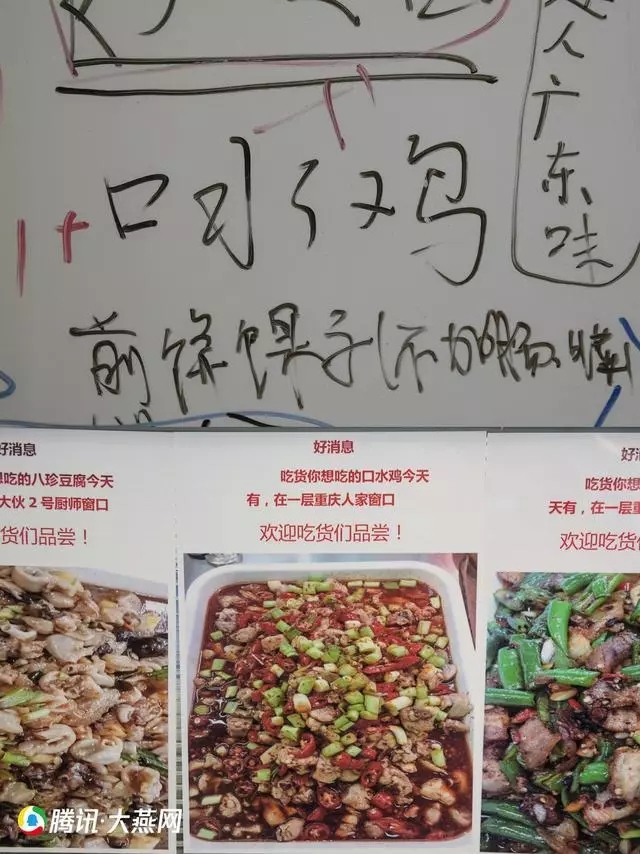 人广东味
1+口水鸡
前饼馃子(不加肠
好消息
想吃的八珍豆腐今天
大伙2号厨师窗口
货们品尝！
好消息
吃货你想吃的口水鸡今天
有，在一层重庆人家窗口
欢迎吃货们品尝！
好消息
吃货你想
天有，在一层重
欢迎吃货
腾讯·大燕网